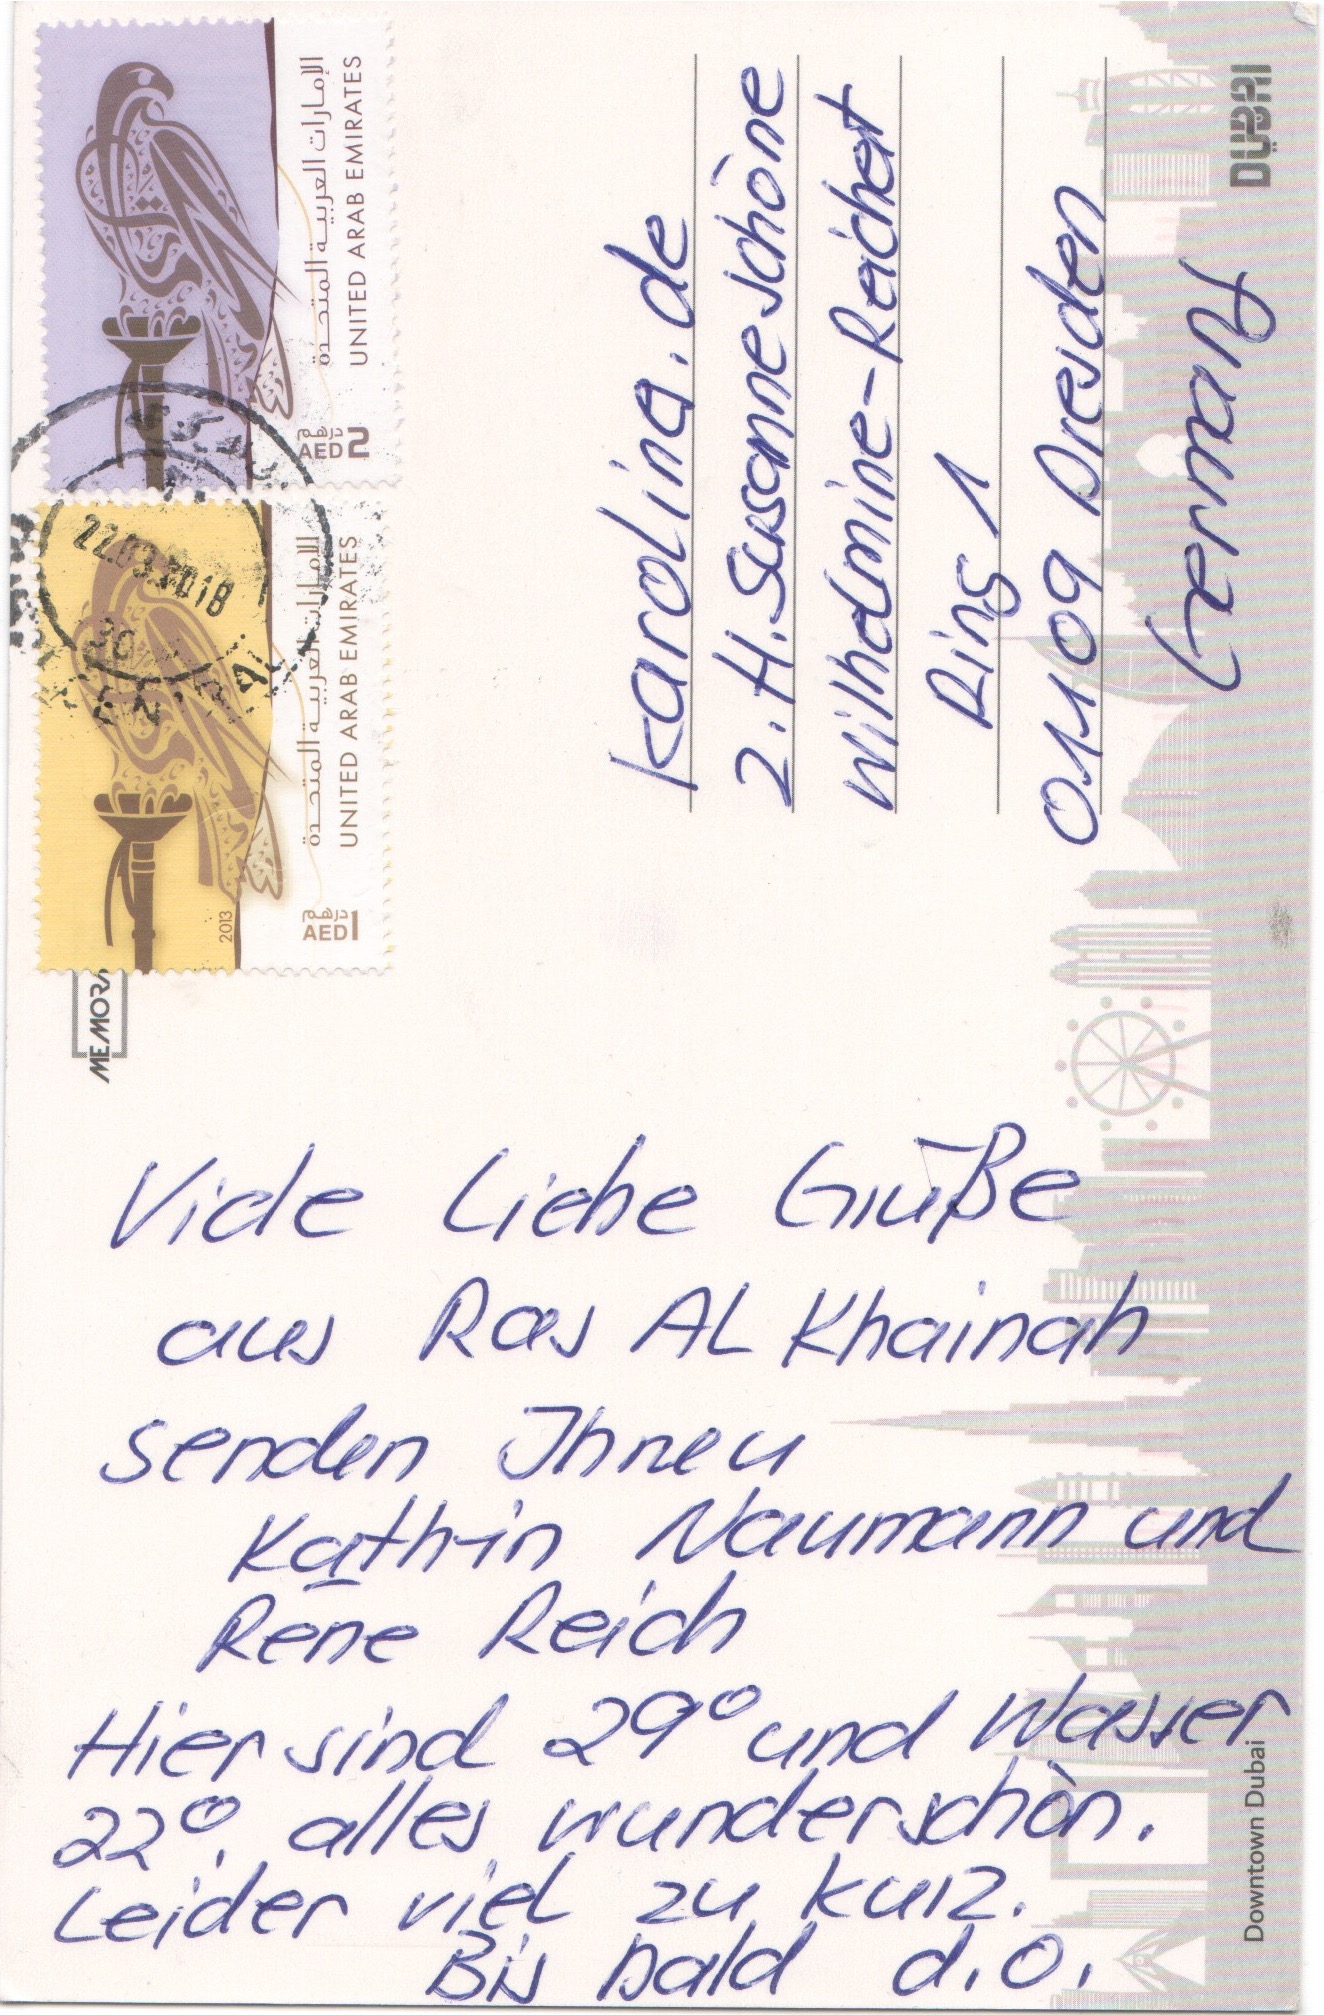 Viele Liebe Grüße
aus Ras AL Khainah
senden Ihnen
Kathrin Naumann und
Rene Reich
Hier sind 29° und Wasser
22°, alles wunderschön.
Leider viel zu kurz.
Bis bald d.O.
MEMORA
الإمارات العربية المتحدة
UNITED ARAB EMIRATES
درهم
AED 1
2013
الإمارات العربية المتحدة
UNITED ARAB EMIRATES
درهم
AED 2
22.03.2018
karolina.de
z.H. Susanne Schöne
Wilhelmine-Reichert
Ring 1
01109 Dresden
Germany
Downtown Dubai
DUBAI